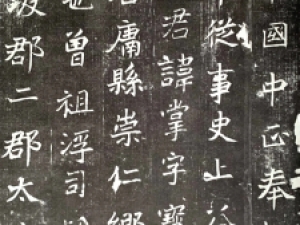 國中正奉
從事史上谷
君諱掌字寶
居庸縣崇仁鄉
也曾祖浮司
郡二郡太